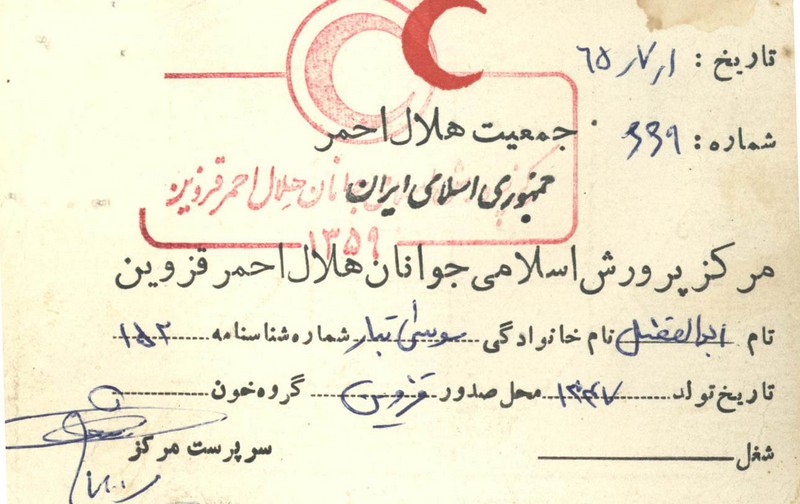 تاریخ : ۶۵/۷/۱
شماره : ۳۳۹
جمعیت هلال احمر
جمهوری اسلامی ایران
جوانان هلال احمر قزوین
۱۳۵۹
مرکز پرورش اسلامی جوانان هلال احمر قزوین
نام ابوالفضل نام خانوادگی موسی تبار شماره شناسنامه ۱۵۲
تاریخ تولد ۱۳۴۷ محل صدور قزوین گروه خون
شغل
سرپرست مرکز